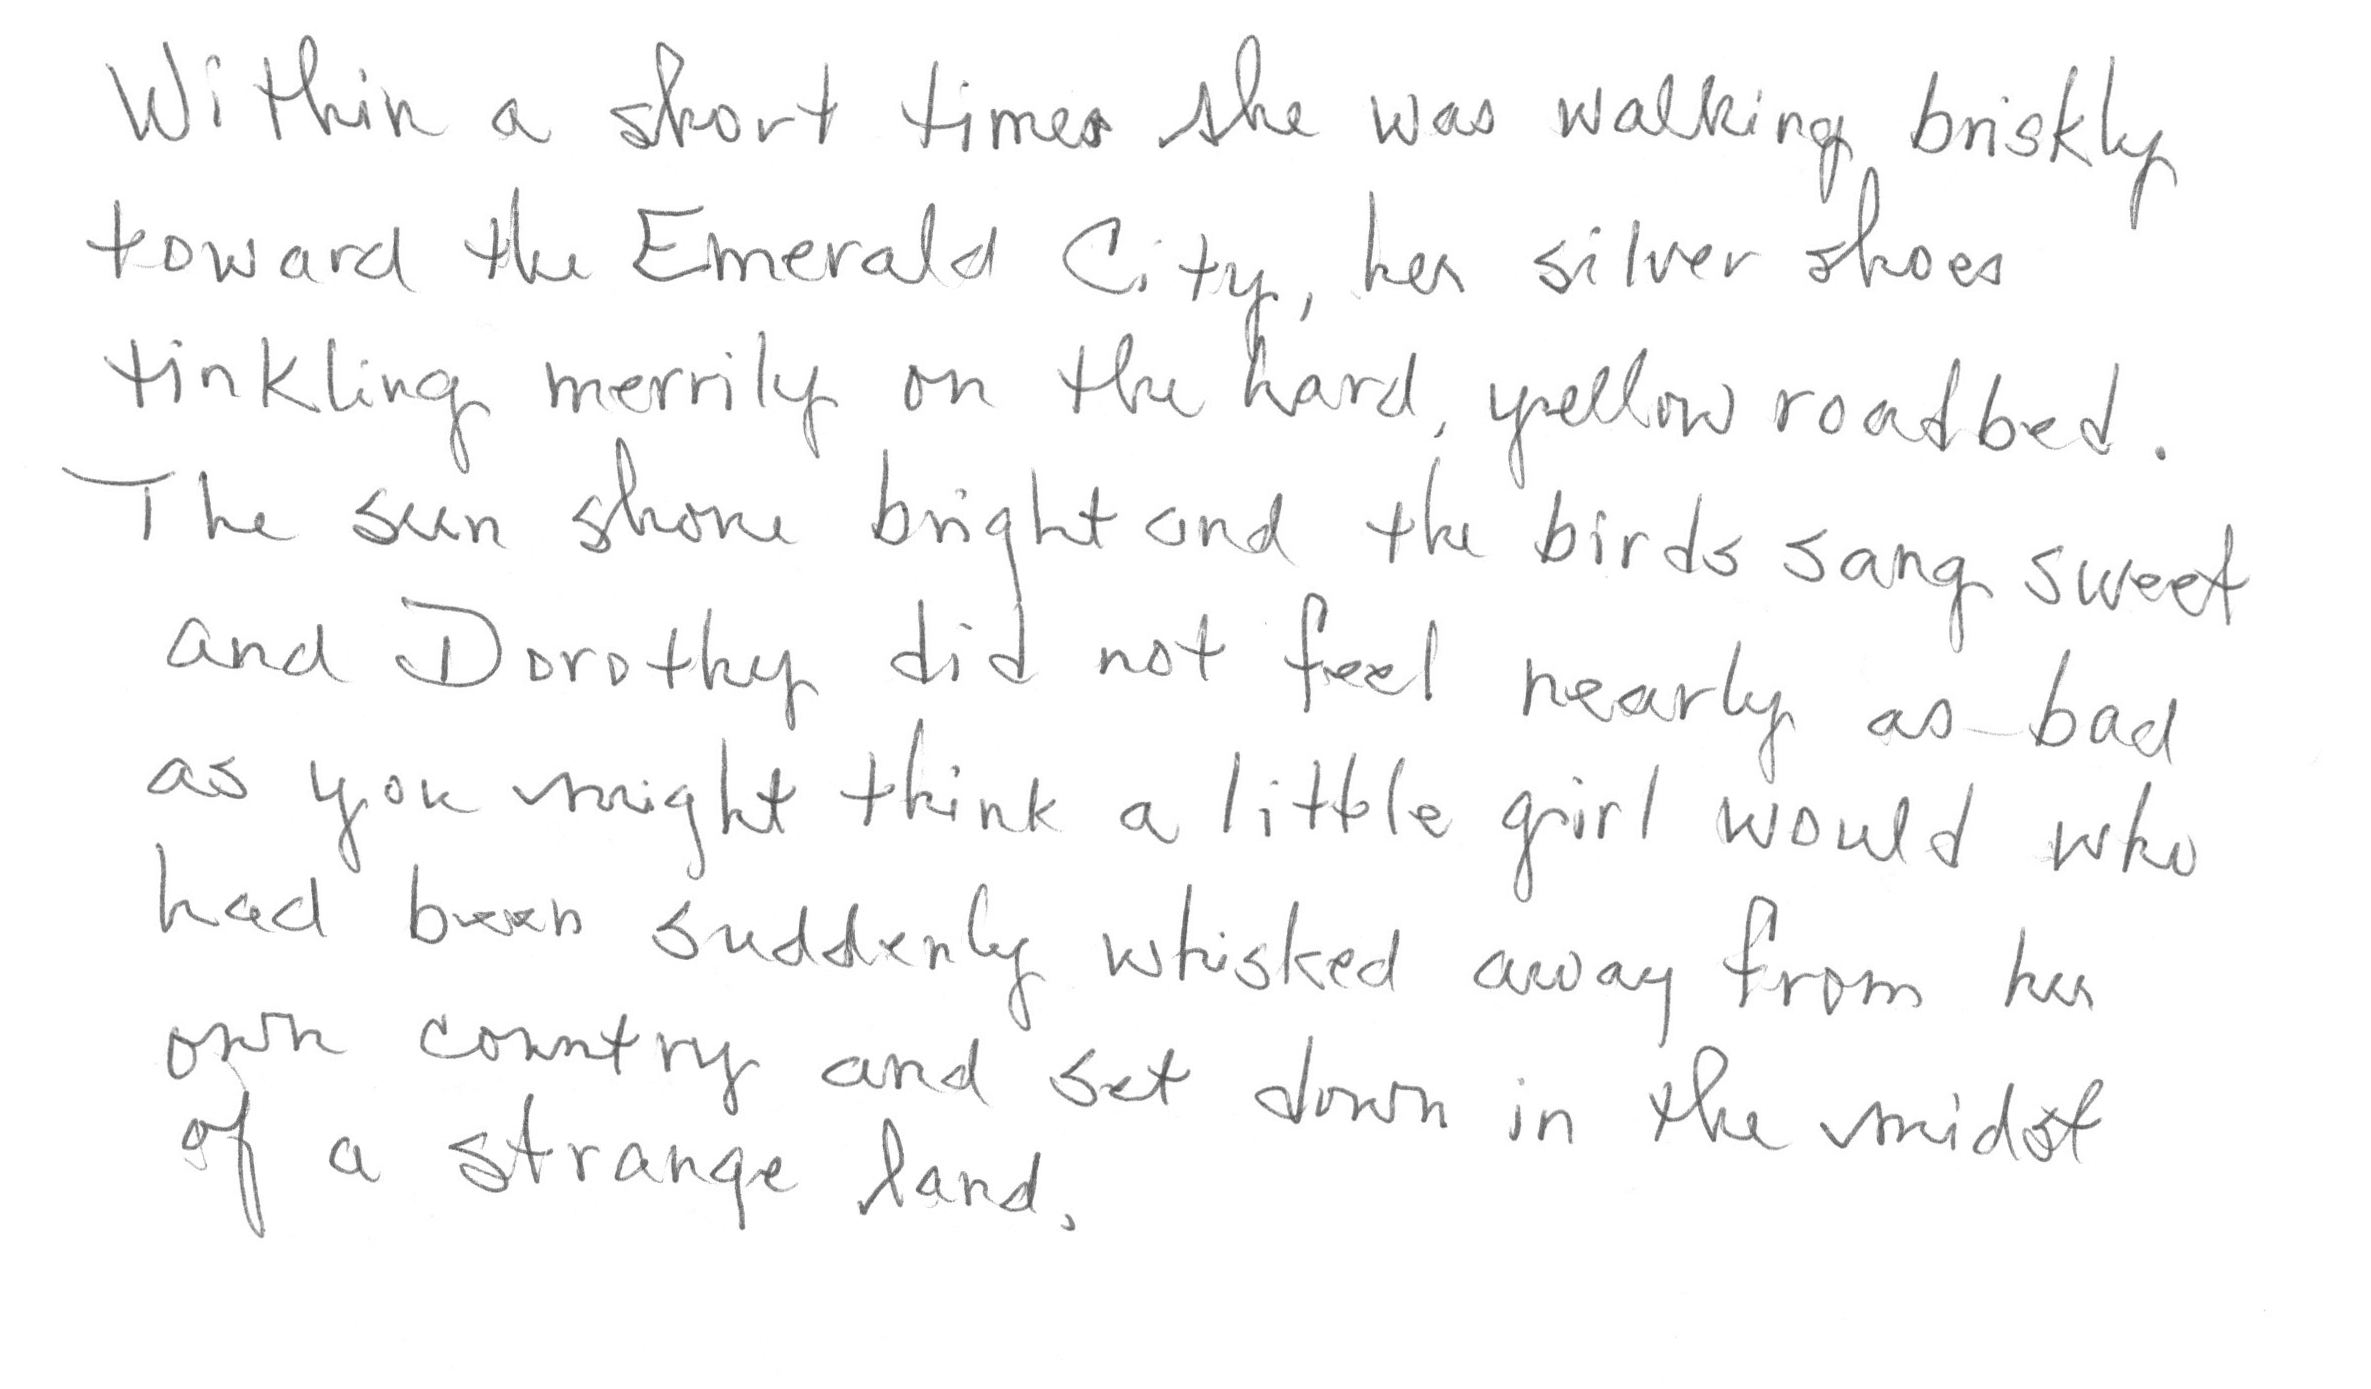 Within a short times she was walking briskly
toward the Emerald City, her silver shoes
tinkling merrily on the hard, yellow roadbed.
The sun shone bright and the birds sang sweet
and Dorothy did not feel nearly as bad
as you might think a little girl would who
had been suddenly whisked away from her
own country and set down in the midst
of a strange land.